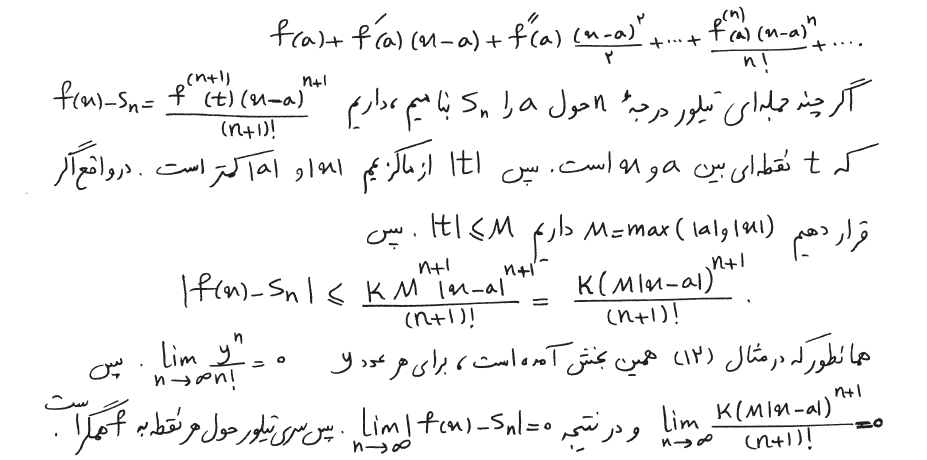 f(a) + f′(a) (x−a) + f″(a) (x−a)^۲/۲ + ... + f^(n)(a) (x−a)^n/n! + ....
اگر چند جمله‌ای تیلور درجهٔ n حول a را Sn بنامیم، داریم f(x)−Sn = f^(n+1)(t) (x−a)^n+1/(n+1)!
که t نقطه‌ای بین a و x است. پس |t| از ماکزیمم |x| و |a| کمتر است. در واقع اگر
قرار دهیم M=max(|a| و |x|) داریم |t| ≤ M. پس
|f(x)−Sn| ≤ K M^n+1 |x−a|^n+1/(n+1)! = K(M|x−a|)^n+1/(n+1)! .
همانطور که در مثال (۱۲) همین بخش آمده است، برای هر عدد y lim n→∞ y^n/n! = ۰. پس
lim n→∞ K(M|x−a|)^n+1/(n+1)! = ۰ و در نتیجه lim n→∞ |f(x)−Sn| = ۰. پس سری تیلور حول هر نقطه به f همگراست.